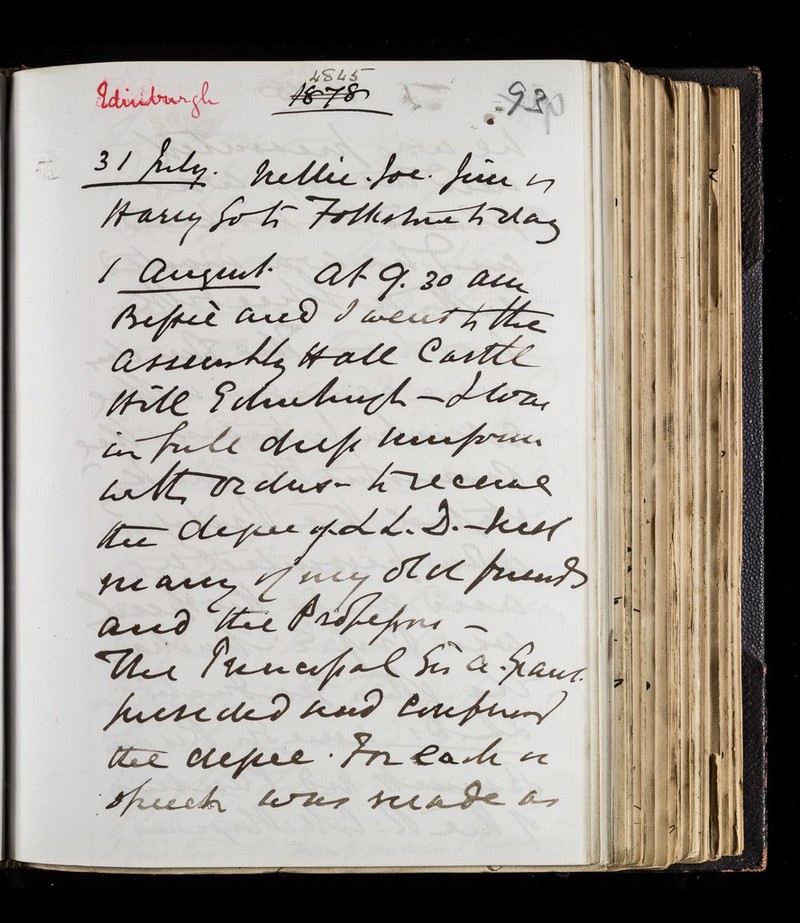 4845
Edinburgh 1878 93
31 July. Nellie. Joe. Jim &
Harry go to Folkstone to day
1 August. At 9.30 am
Bessie and I went to the
Assembly Hall Castle
Hill Edinburgh - I was
in full dress uniform
with orders - to receive
the degree of L L. D. - met
many of my old friends
and the Professors -
The Principal Sir A. Grant
presided and conferred
the degree. For each a
speech was made as